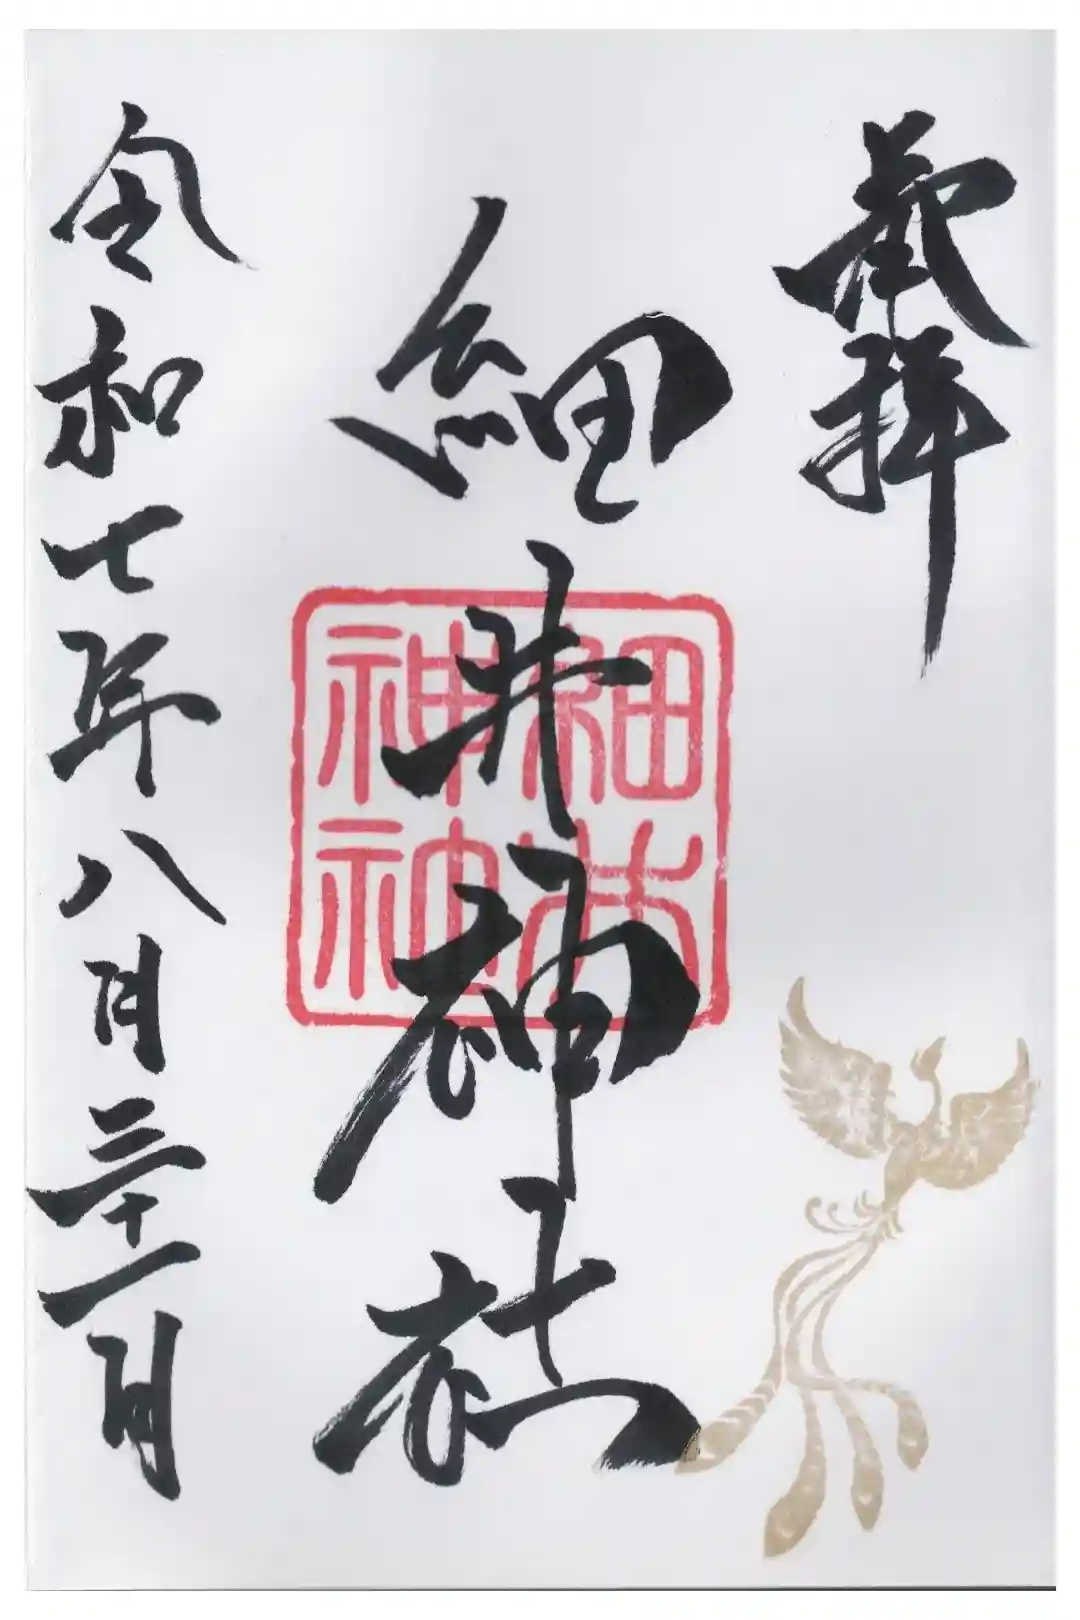 拝
細井神社
細井
神社
令和七年八月三十一日